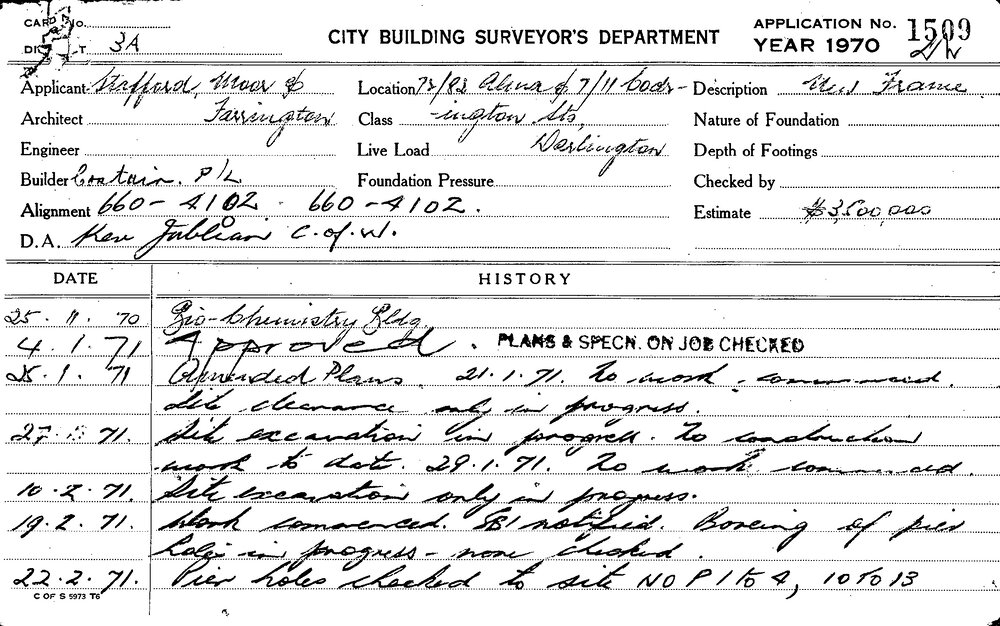 CARD No.
DIST 3A
CITY BUILDING SURVEYOR'S DEPARTMENT
APPLICATION No. 1509
YEAR 1970
Applicant Stafford, Moor &
Location 72/82 Alma & 7/11 Codr-
Description New Frame
Architect Farrington
Class -ington Sts,
Nature of Foundation
Engineer
Live Load Darlington
Depth of Footings
Builder Costain. P/L
Foundation Pressure
Checked by
Alignment 660-4102 . 660-4102.
Estimate $3,500,000
D.A. Ken Jublian C.of.W.
DATE HISTORY
25.11.70 Bio-Chemistry Bldg
4.1.71 Approved. PLANS & SPECN. ON JOB CHECKED
25.1.71 Amended Plans. 21.1.71. No work commenced.
Site clearance only in progress.
27. 71. Site excavation in progress. No construction
work to date. 29.1.71. No work commenced.
10.2.71. Site excavation only in progress.
19.2.71. Work commenced. notified. Boreing of pier
holes in progress - none checked.
22.2.71. Pier holes checked to site NO P 1 TO 4, 10 TO 13
C OF S 5973 T6